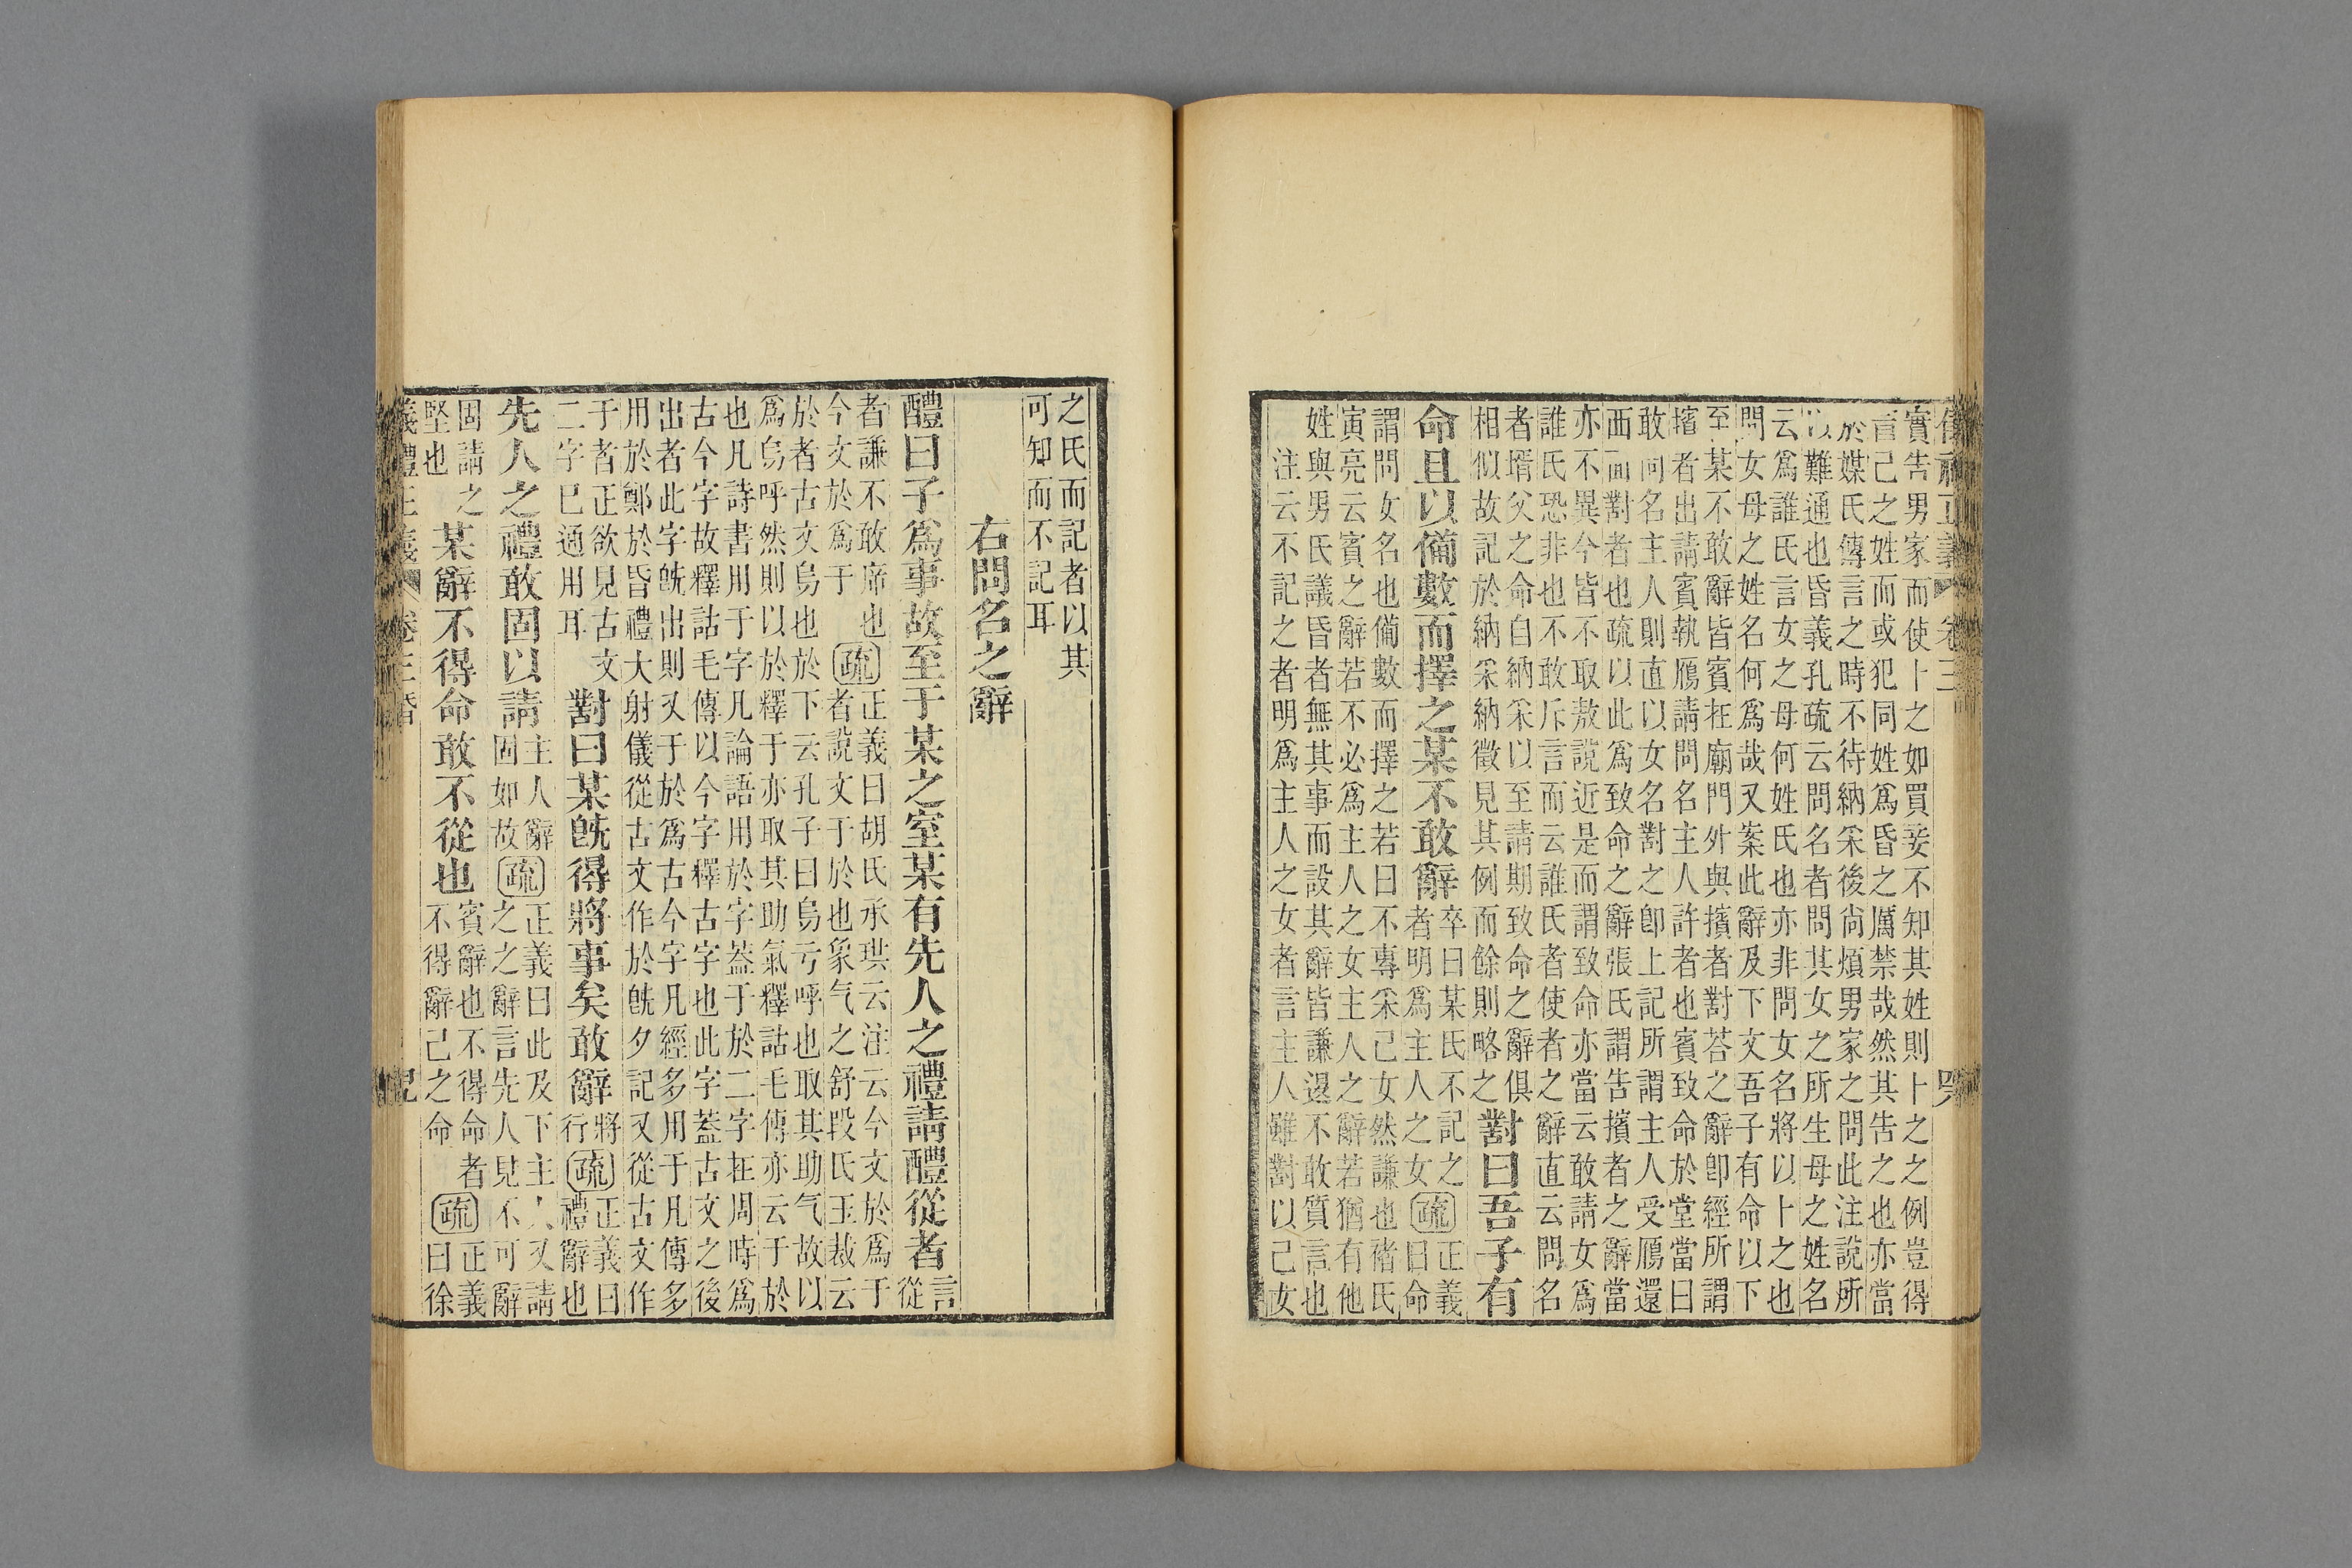 實告男家而使卜之如買妾不知其姓則卜之之例豈得
言己之姓而或犯同姓爲昏之厲禁哉然其告之也亦當
於媒氏傳言之時不待納采後尙煩男家之問此注說所
以難通也昏義孔疏云問名者問其女之所生母之姓名
云爲誰氏言女之母何姓氏也亦非問女名將以卜之也
問女母之姓名何爲哉又案此辭及下文吾子有命以下
至某不敢辭皆賓在廟門外與擯者對荅之辭卽經所謂
擯者出請賓執鴈請問名主人許者也賓致命於堂當曰
敢問名主人則直以女名對之卽上記所謂主人受鴈還
西面對者也疏以此爲致命之辭張氏謂告擯者之辭當
亦不異今皆不取敖說近是而謂致命亦當云敢請女爲
誰氏恐非也不敢斥言而云誰氏者使者之辭直云問名
者壻父之命自納采以至請期致命之辭俱
相似故記於納采納徵見其例而餘則略之
對曰吾子有
命且以備數而擇之某不敢辭
卒曰某氏不記之
者明爲主人之女
疏
正義
曰命
謂問女名也備數而擇之若曰不專采己女然謙也褚氏
寅亮云賓之辭若不必爲主人之女主人之辭若猶有他
姓與男氏議昏者無其事而設其辭皆謙退不敢質言也
注云不記之者明爲主人之女者言主人雖對以己女
之氏而記者以其
可知而不記耳
右問名之辭
醴曰子爲事故至于某之室某有先人之禮請醴從者
言
從
者謙不敢席也
今文於爲于
疏
正義曰胡氏承珙云注云今文於爲于
者說文于於也象气之舒段氏玉裁云
於者古文烏也於下云孔子曰烏亏呼也取其助气故以
爲烏呼然則以於釋于亦取其助氣釋詁毛傳亦云于於
也凡詩書用于字凡論語用於字蓋于於二字在周時爲
古今字故釋詁毛傳以今字釋古字也此字蓋古文之後
出者此字旣出則又于於爲古今字凡經多用于凡傳多
用於鄭於昏禮大射儀從古文作於旣夕記又從古文作
于者正欲見古文
二字已通用耳
對曰某旣得將事矣敢辭
將
行
疏
正義曰
禮辭也
先人之禮敢固以請
主人辭
固如故
疏
正義曰此及下主人又請
之之辭言先人見不可辭
固請之
堅也
某辭不得命敢不從也
賓辭也不得命者
不得辭己之命
疏
正義
曰徐